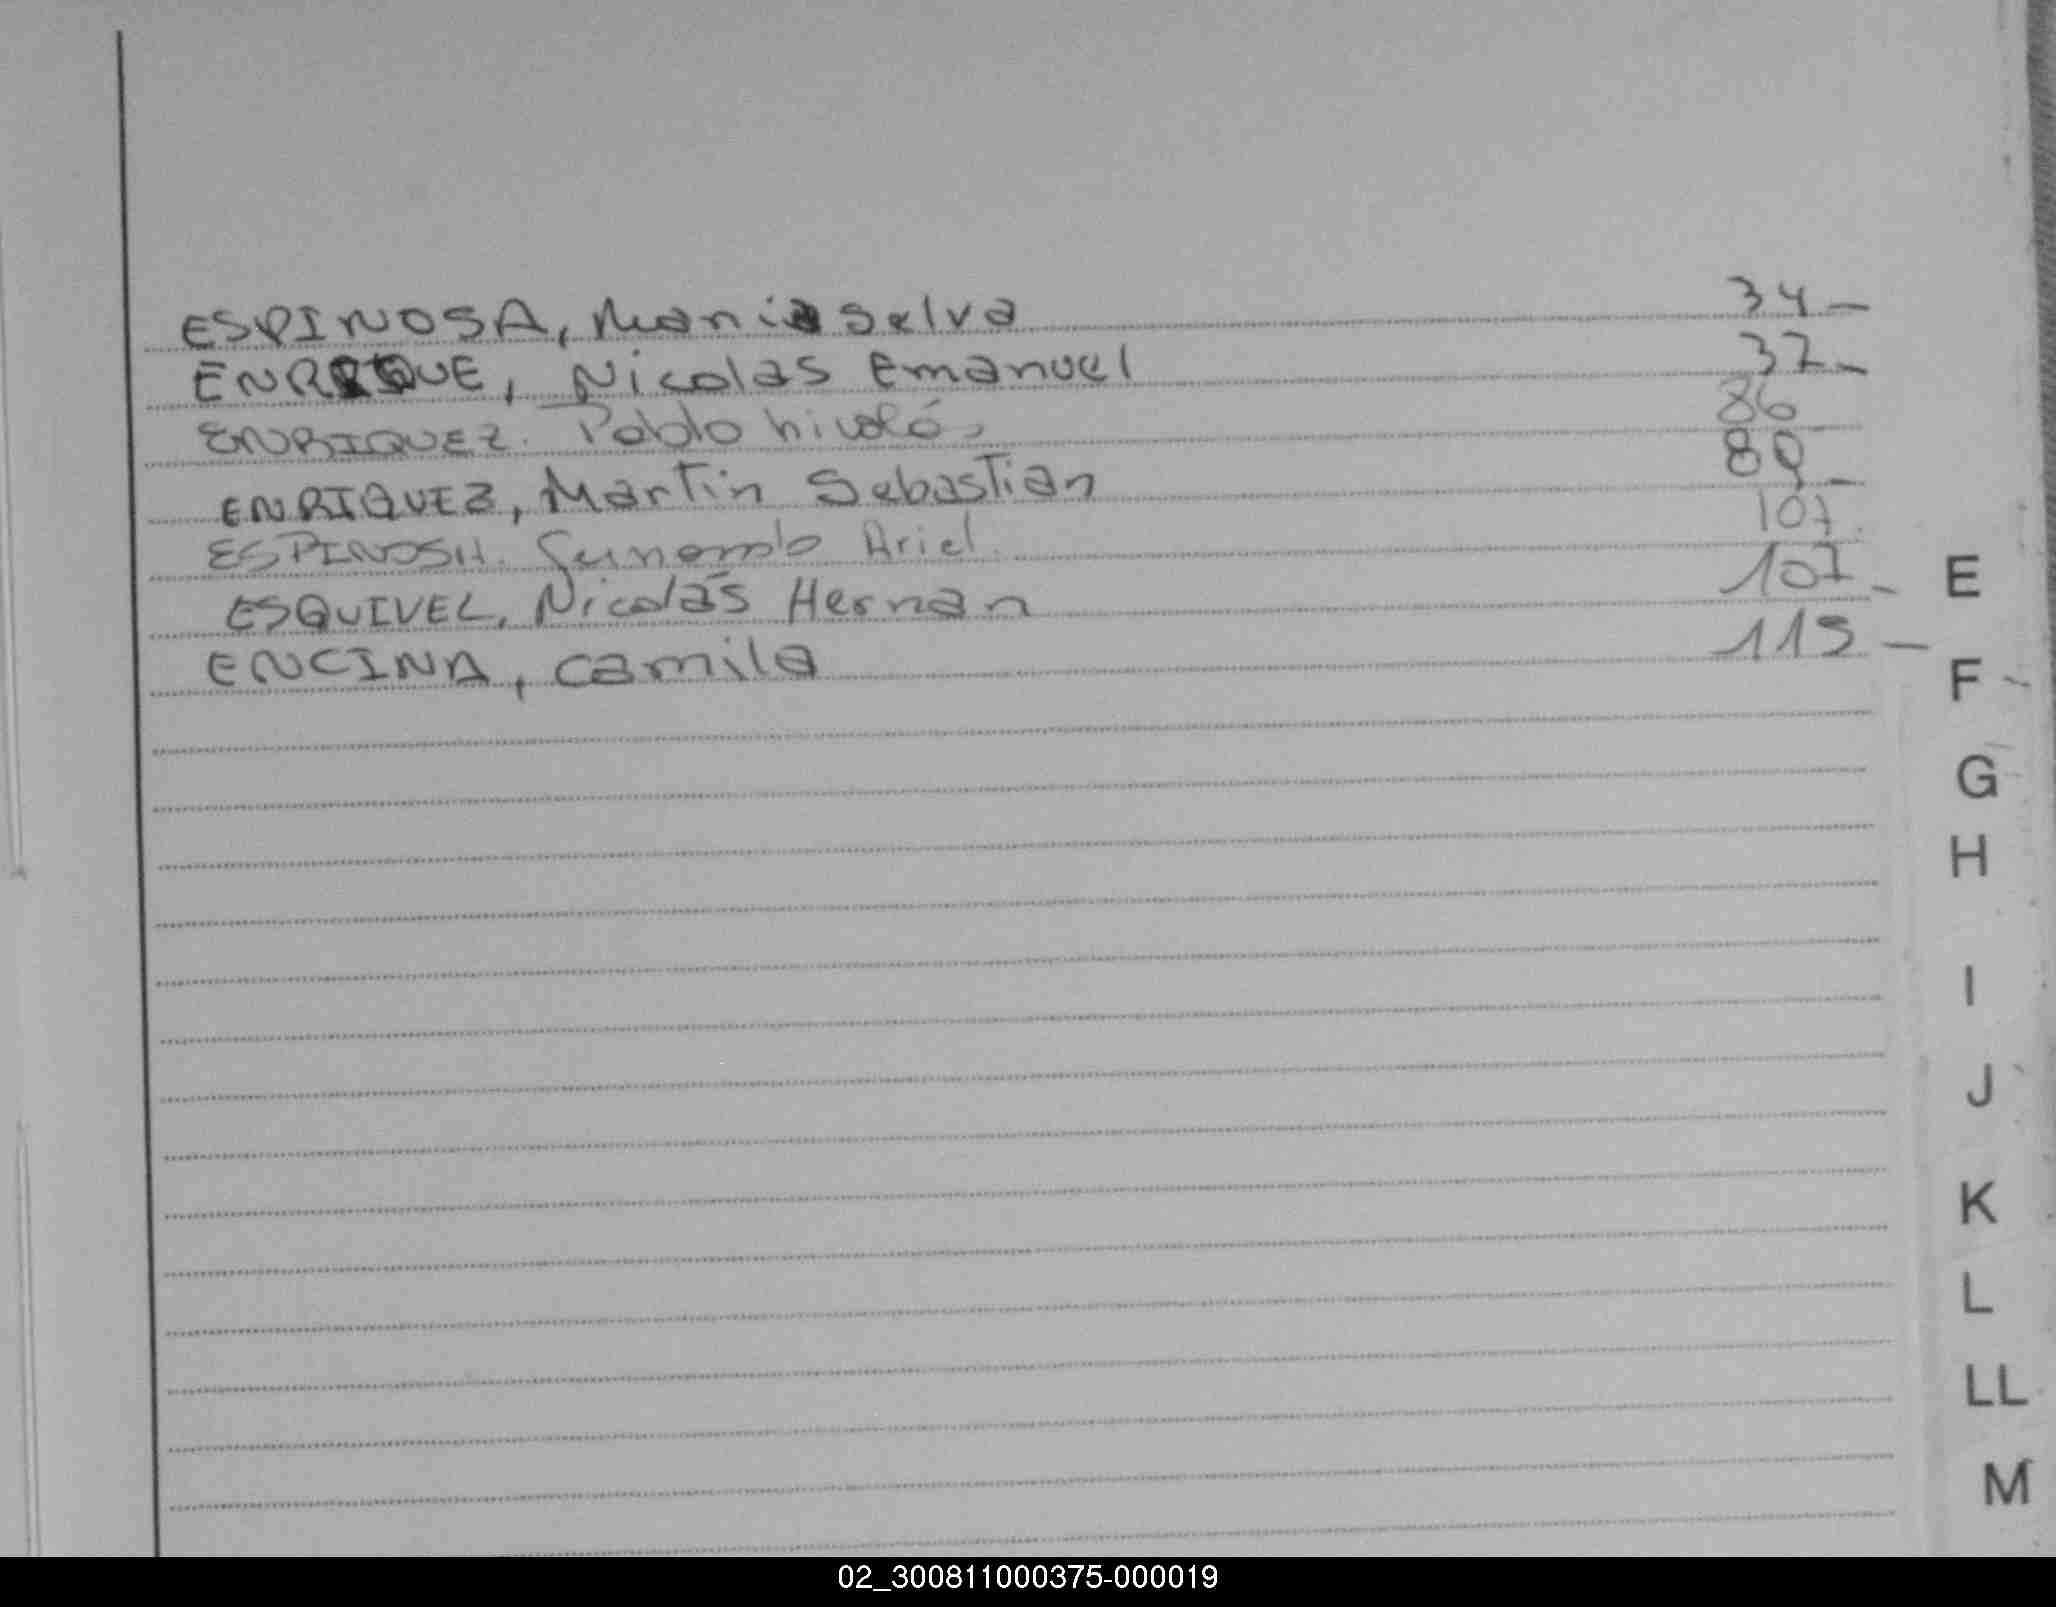 ESPINOSA, Maria Selva 34 -
ENRIQUE, Nicolas Emanuel 37 -
ENRIQUEZ. Pablo Nicolás 86
ENRIQUEZ, Martin Sebastian 89 -
ESPINOSA. Ariel. 107.
ESQUIVEL, Nicolás Hernan 107 -
ENCINA, Camila 115 -
E
F
G
H
I
J
K
L
LL
M
02_300811000375-000019